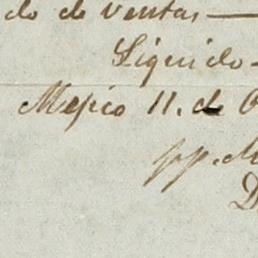 do de ventas
Liquido
Mexico 11. de O
pp. M
D